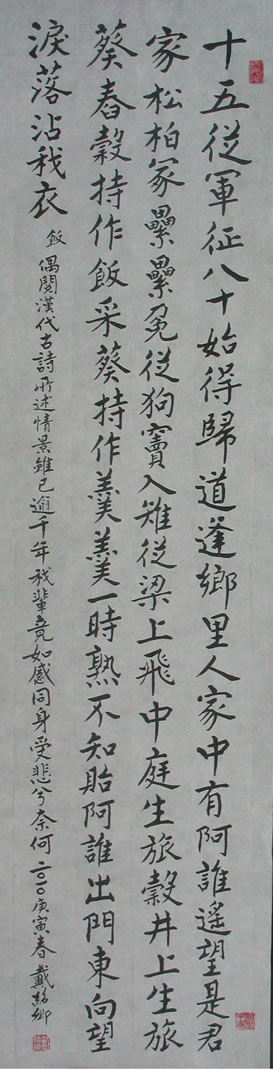 十五從軍征八十始得歸道逢鄉里人家中有阿誰遙望是君
家松柏冢纍纍兔從狗竇入雉從梁上飛中庭生旅穀井上生旅
葵舂穀持作飯采葵持作羹羹一時熟不知貽阿誰出門東向望
淚落沾我衣
飯 偶閱漢代古詩所述情景雖已逾千年我輩竟如感同身受悲兮奈何 二〇一〇庚寅春 戴紹卿